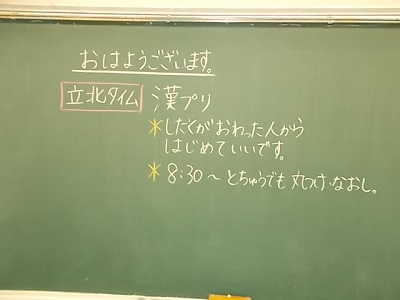 おはようございます。
立北タイム 漢プリ
*したくがおわった人から
はじめていいです。
*8:30～とちゅうでも丸つけ・なおし。